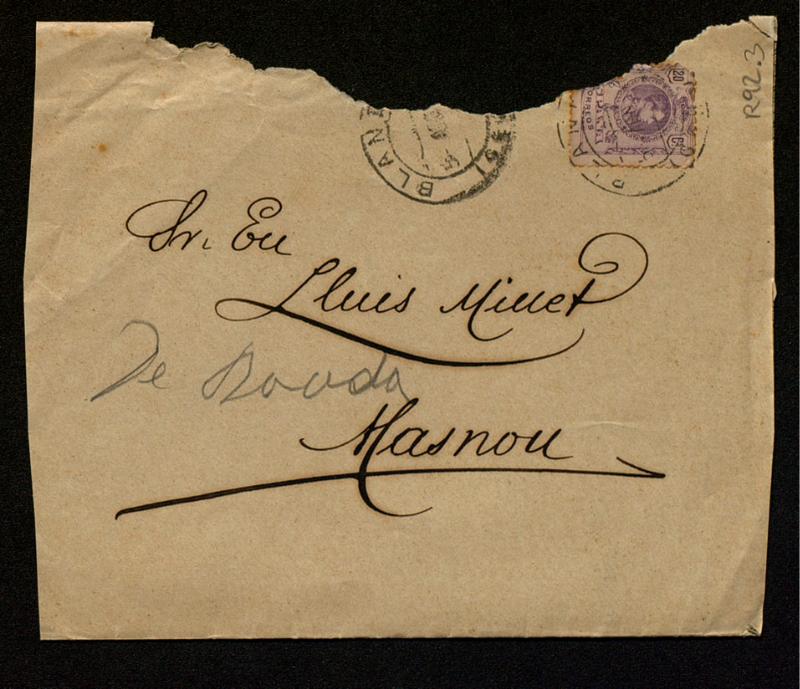 R92.3
BLAN
20
CORREOS
Sr. En
Lluis Millet
De
Masnou